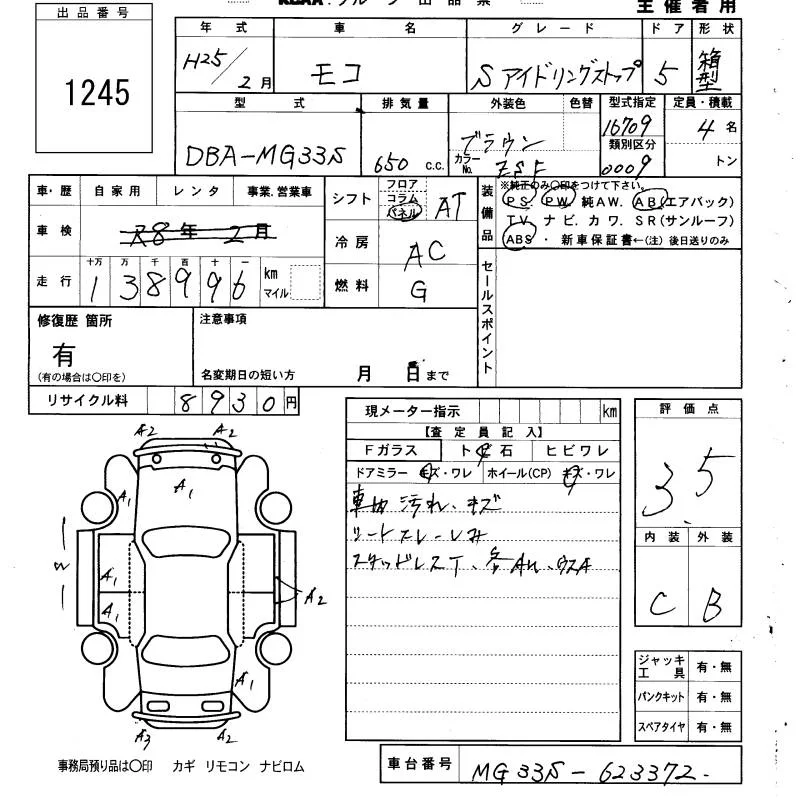 出品番号
1245
主催者用
年式 車名 グレード ドア 形状
H25/2月 モコ Sアイドリングストップ 5 箱型
型式 排気量 外装色 色替 型式指定 定員・積載
DBA-MG33S 650 c.c. ブラウン カラーNo. ZSF 16709 4名
類別区分
0009 トン
車・歴 自家用 レンタ 事業.営業車
車検 R8年 2月
走行 十万 万 千 百 十 一
138996 km マイル
シフト フロア コラム パネル AT
冷房 AC
燃料 G
装備品 ※純正のみ○印をつけて下さい。
PS. PW. 純AW. AB(エアバック)
TV. ナビ. カワ. SR(サンルーフ)
ABS ・ 新車保証書←(注) 後日送りのみ
セールスポイント
修復歴 箇所
有
(有の場合は○印を)
注意事項
名変期日の短い方 月 日まで
リサイクル料 8930円
現メーター指示 km
【査定員記入】
Fガラス ト 石 ヒビワレ
ドアミラー キズ・ワレ ホイール(CP) キズ・ワレ
車内 汚れ、キズ
シートスレ・しみ
スタッドレスT、
評価点
3.5
内装 外装
C B
A2 A2
A1 A1
A1
A1 A2
A1
A3 A2
ジャッキ工具 有・無
パンクキット 有・無
スペアタイヤ 有・無
事務局預り品は○印 カギ リモコン ナビロム
車台番号 MG33S-623372